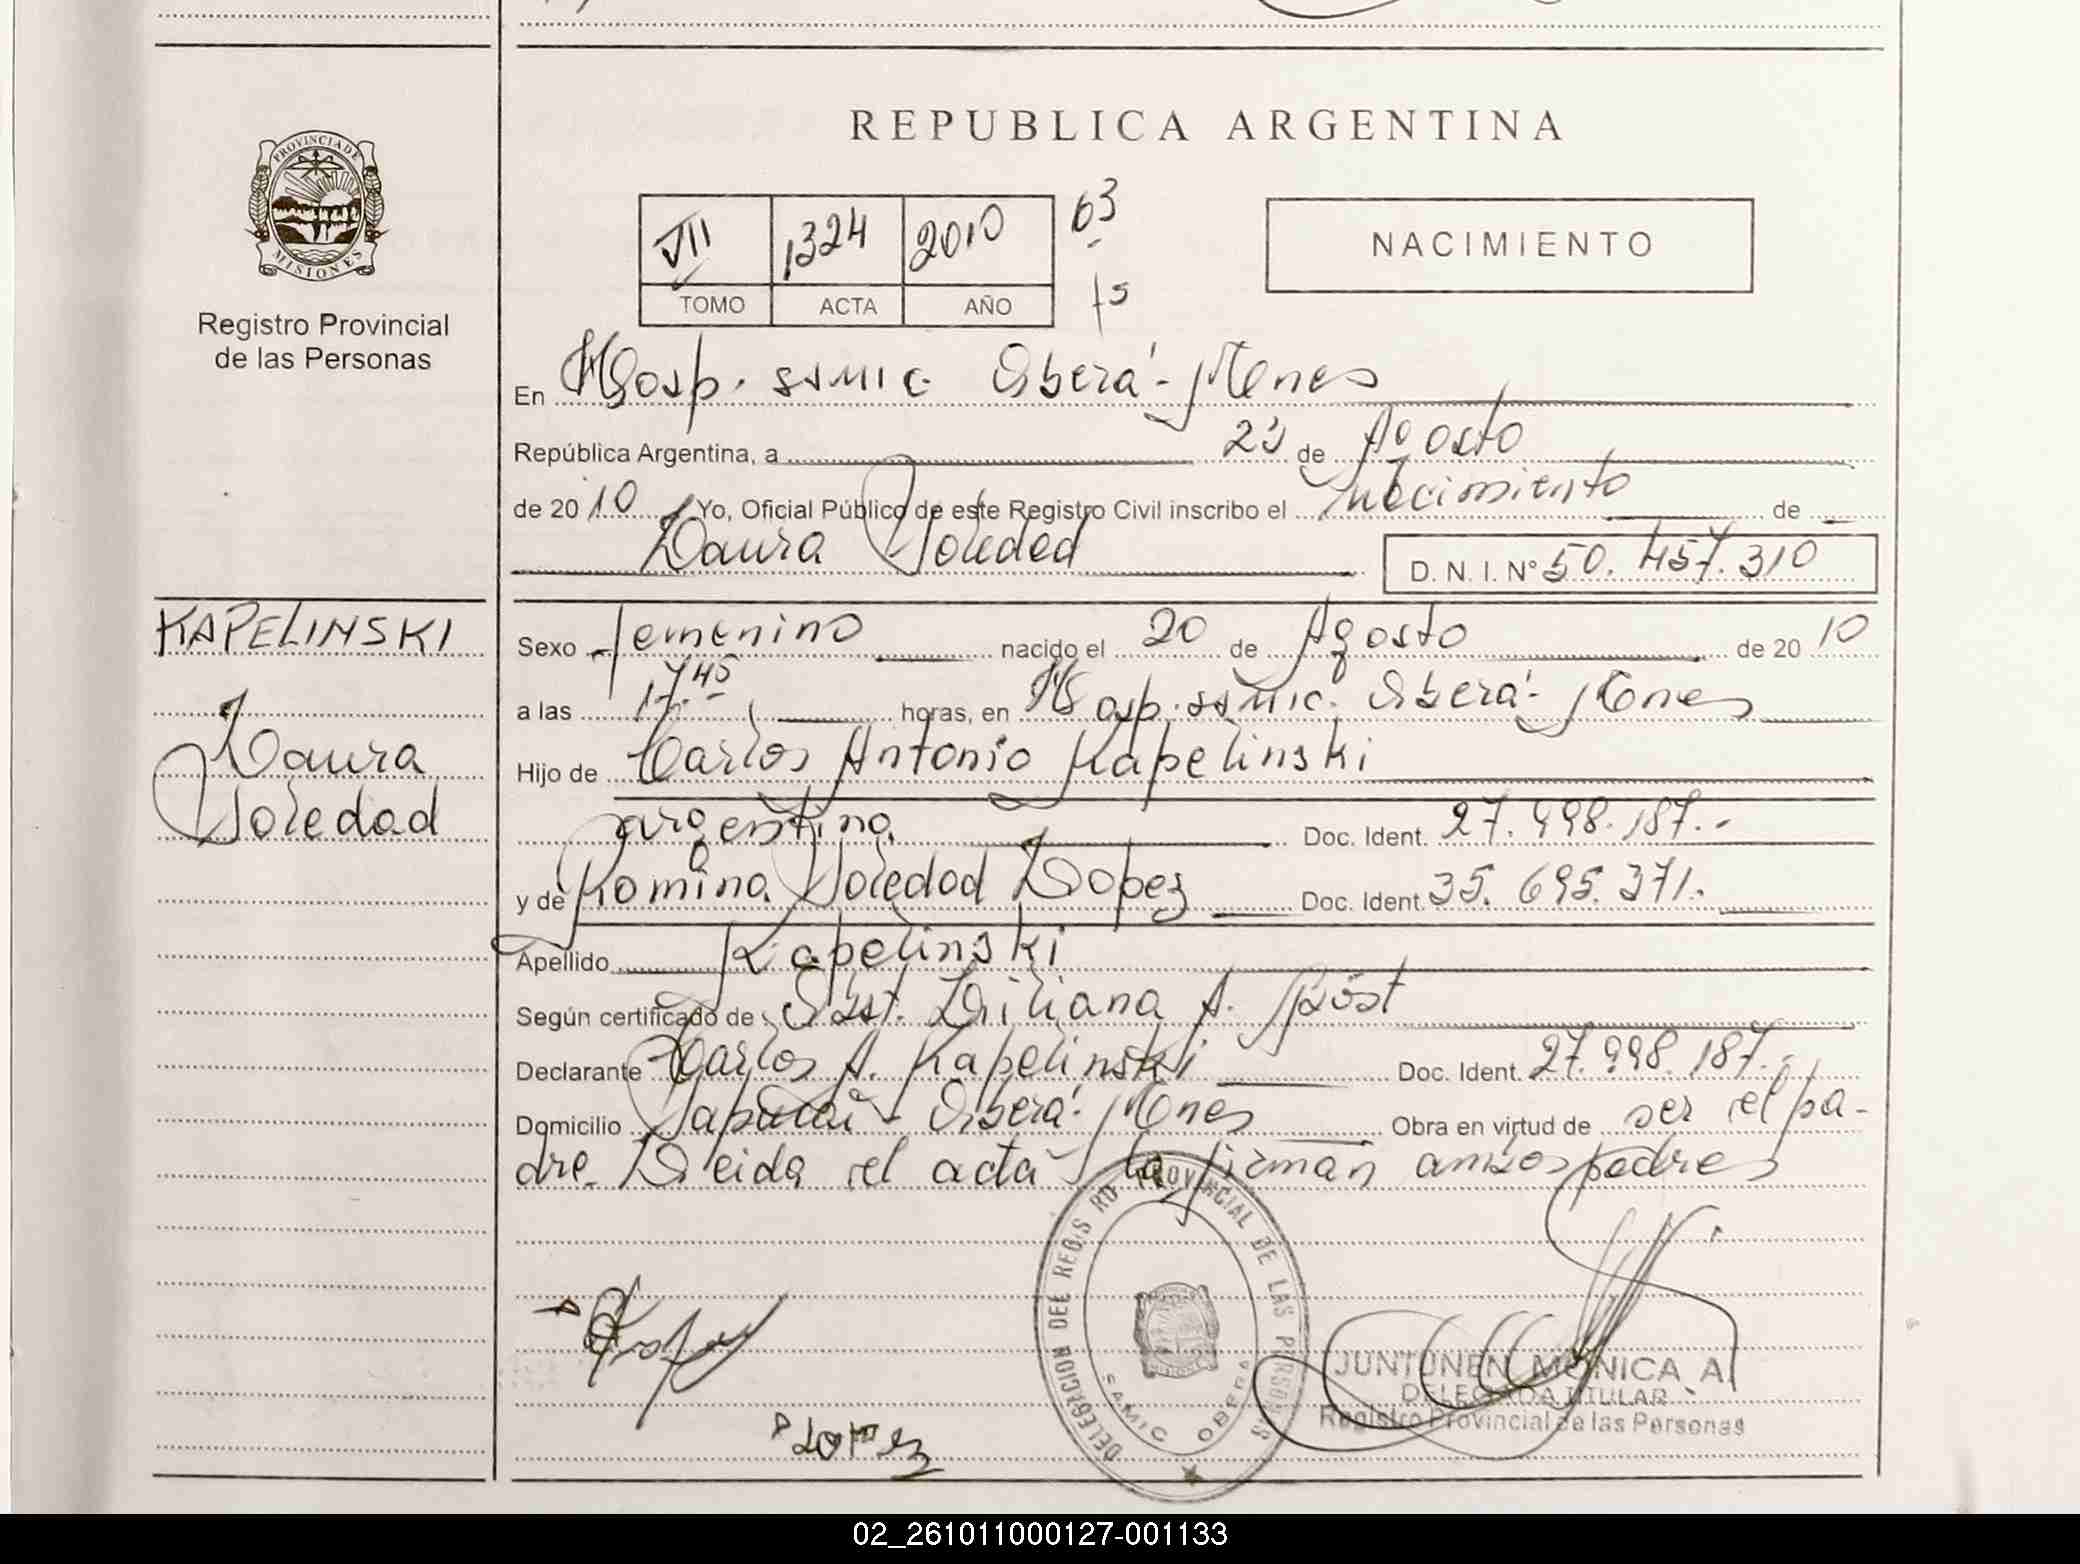 REPUBLICA ARGENTINA
PROVINCIA DE MISIONES
Registro Provincial
de las Personas
VII 1324 2010 63
TOMO ACTA AÑO
NACIMIENTO
En Hosp. SAMIC. Oberá - Mnes
República Argentina, a 23 de Agosto
de 2010 Yo, Oficial Público de este Registro Civil inscribo el nacimiento de
Laura Soledad D. N. I. N° 50.457.310
KAPELINSKI
Laura
Soledad
Sexo femenino nacido el 20 de Agosto de 2010
a las 17.45 horas, en Hosp. SAMIC. Oberá - Mnes
Hijo de Carlos Antonio Kapelinski
argentina Doc. Ident. 27.998.187.-
y de Romina Soledad Lopez Doc. Ident. 35.695.371.-
Apellido Kapelinski
Según certificado de: Obst. Liliana A.
Declarante Carlos A. Kapelinski Doc. Ident. 27.998.187.-
Domicilio Oberá - Mnes Obra en virtud de ser el pa-
dre. Leida el acta la firman ambos padres
DELEGACION DEL REGISTRO PROVINCIAL DE LAS PERSONAS
SAMIC OBERA
Lopez
JUNTUNEN MONICA A.
DELEGADA TITULAR
Registro Provincial de las Personas
02_261011000127-001133